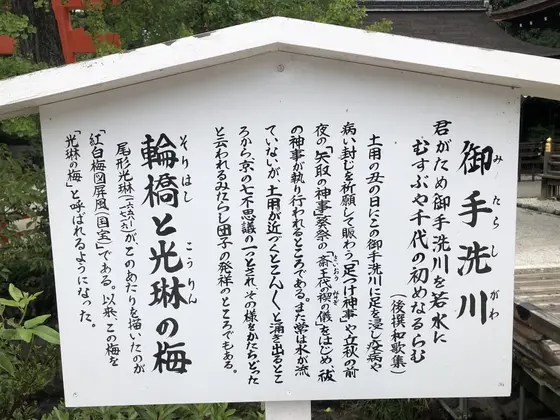 御手洗川
みたらしがわ
君がため御手洗川を若水に
むすぶや千代の初めなるらむ
(後撰和歌集)
土用の丑の日にこの御手洗川に足を浸し疫病や
病い封じを祈願して賑わう「足つけ神事」や立秋の前
夜の「矢取の神事」葵祭の「斎王代の禊の儀」をはじめ祓
さいおうだい みそぎ
の神事が執り行われるところである。また常は水が流
ていないが、土用が近づくとこんこんと湧き出るとこ
ろから京の七不思議の一つとされ、その様をかたどった
と云われるみたらし団子の発祥のところでもある。
輪橋と光琳の梅
そりはし こうりん
尾形光琳がこのあたりを描いたのが
「紅白梅図屏風(国宝)」である。以来、この梅を
「光琳の梅」と呼ばれるようになった。